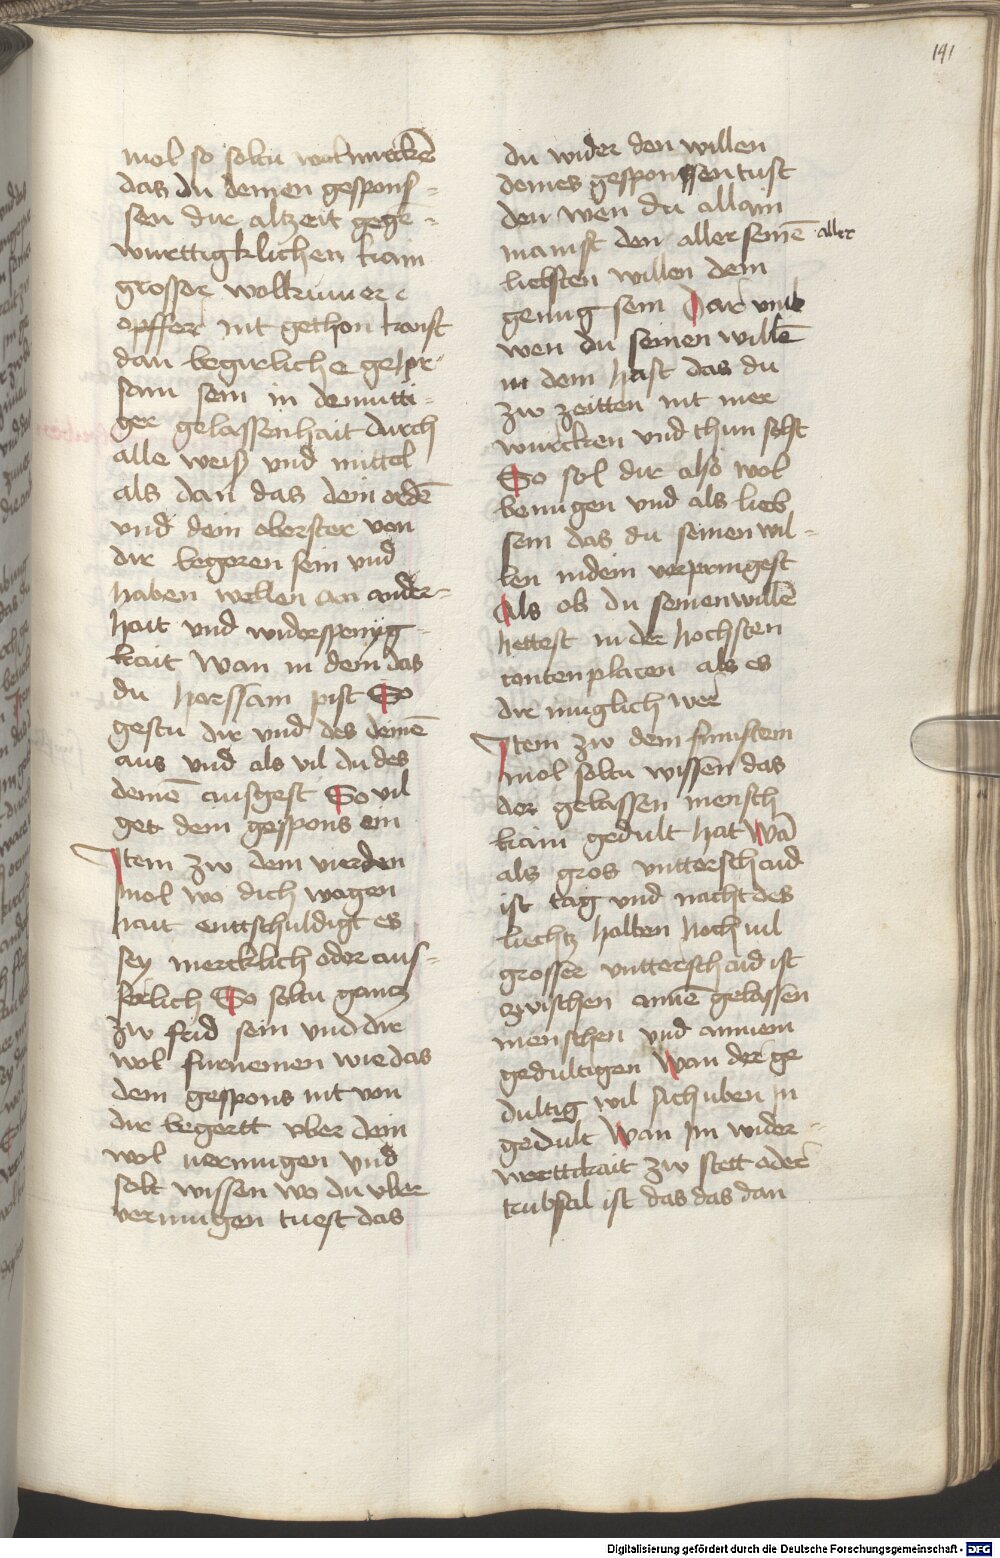 191
mol so soltu wol mercken̄
das du deinen gespons=
sen dir altzeit gege=
wurttigklichen kain
grosser wolkumer
opffer nit gethon kanst
dan begirliche gehor=
sam sein in demutti=
ger gelassenhait durch
alle weiß und mittel
als dan das dein ordē
und dein oberster von
dir begeren sein und
haben wellen an ander=
hait und widerspenig=
kait Wan in dem das
du horssam pist So
gestu dir und des deinē
aus und als vil du des
deinē ausgest So vil
get dein gespons ein
Item zw dem vierden
mol wo dich wogen
hait enttschuldigt es
sey mercklich oder aus=
serlich So soltu gantz
zw frid sein und dir
wol furnemen wie das
dem gespons nit von
dir begertt vber dein
wol vermugen und
solt wissen wo du vber
vermugen tuest das
du wider den willen
deines gesponssen tust
den wen du allain
mainst den aller seinē aller
liebsten willen dem
genug sein Dar umb
wen du seinen willē
in dem hast das du
zw zeitten nit mer
wurcken und thun solst
So sol dir also wol
benugen und als lieb
sein das du seinen wil=
len indem verpringest
Als ob du seinen willē
hettest in der hochsten
contenplacen als es
dir muglich wer
Item zw dem funfften
mol soltu wissen das
der gelassen mensch
kain gedult hat Wā
als gros untterschaid
ist tag und nacht des
liechtz halben hoch vil
grosser untterschaid ist
zwischen ainē gelassen
menschen und ainnem
gedultigen Wan der ge
dultig wil sich uben in
gedult Wan im wider=
werttikait zw stett oder
trubsal ist das das dan
Digitalisierung gefördert durch die Deutsche Forschungsgemeinschaft - DFG